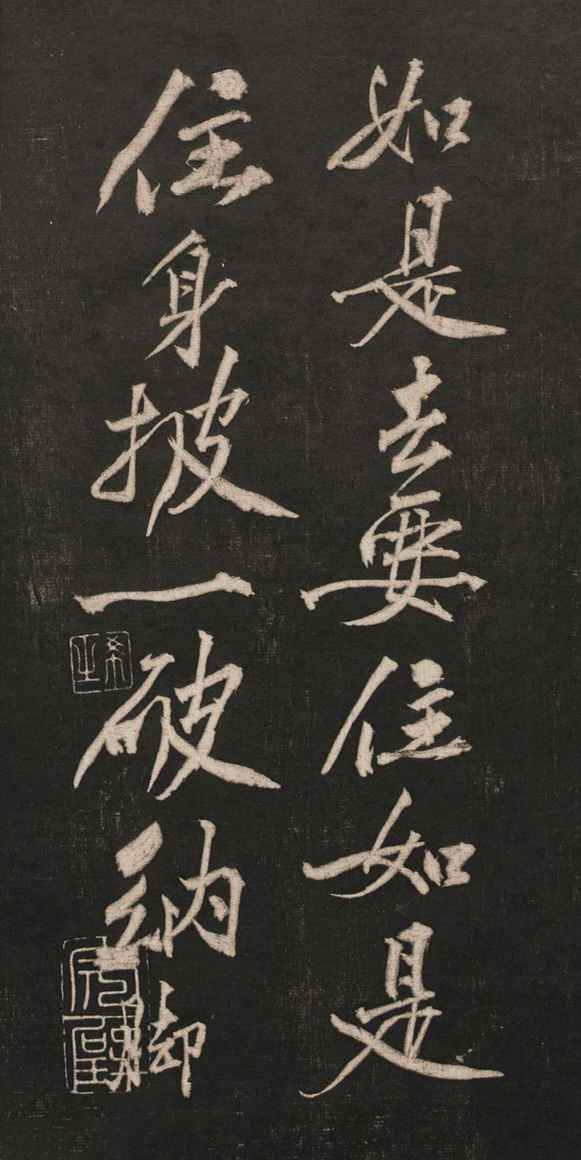 如是去要住如是
住身披一破衲脚